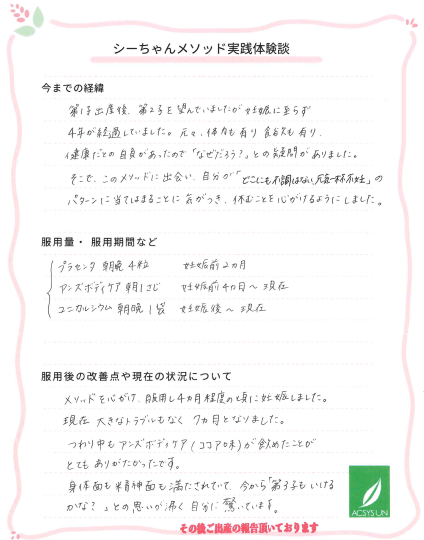 シーちゃんメソッド実践体験談
今までの経緯
第1子出産後、第2子を望んでいましたが妊娠に至らず
4年が経過していました。元々、体力も有り食欲も有り、
健康だとの自負があったので「なぜだろう?」との疑問がありました。
そこで、このメソッドに出会い、自分が「どこにも不調はない原因不明不妊」の
パターンに当てはまることに気がつき、休むことを心がけるようにしました。
服用量・服用期間など
プラセンタ 朝晩4粒 妊娠前2カ月
アンズボディケア 朝1さじ 妊娠前4カ月～現在
ユニカルシウム 朝晩1袋 妊娠後～現在
服用後の改善点や現在の状況について
メソッドを心がけ、服用し4カ月程度の頃に妊娠しました。
現在 大きなトラブルもなく 7カ月となりました。
つわり中もアンズボディケア(ココア味)が飲めたことが
とてもありがたかったです。
身体面も精神面も満たされていて、今から「第3子もいける
かな?」との思いが沸く自分に驚いています。
ACSYSUN
その後ご出産の報告頂いております